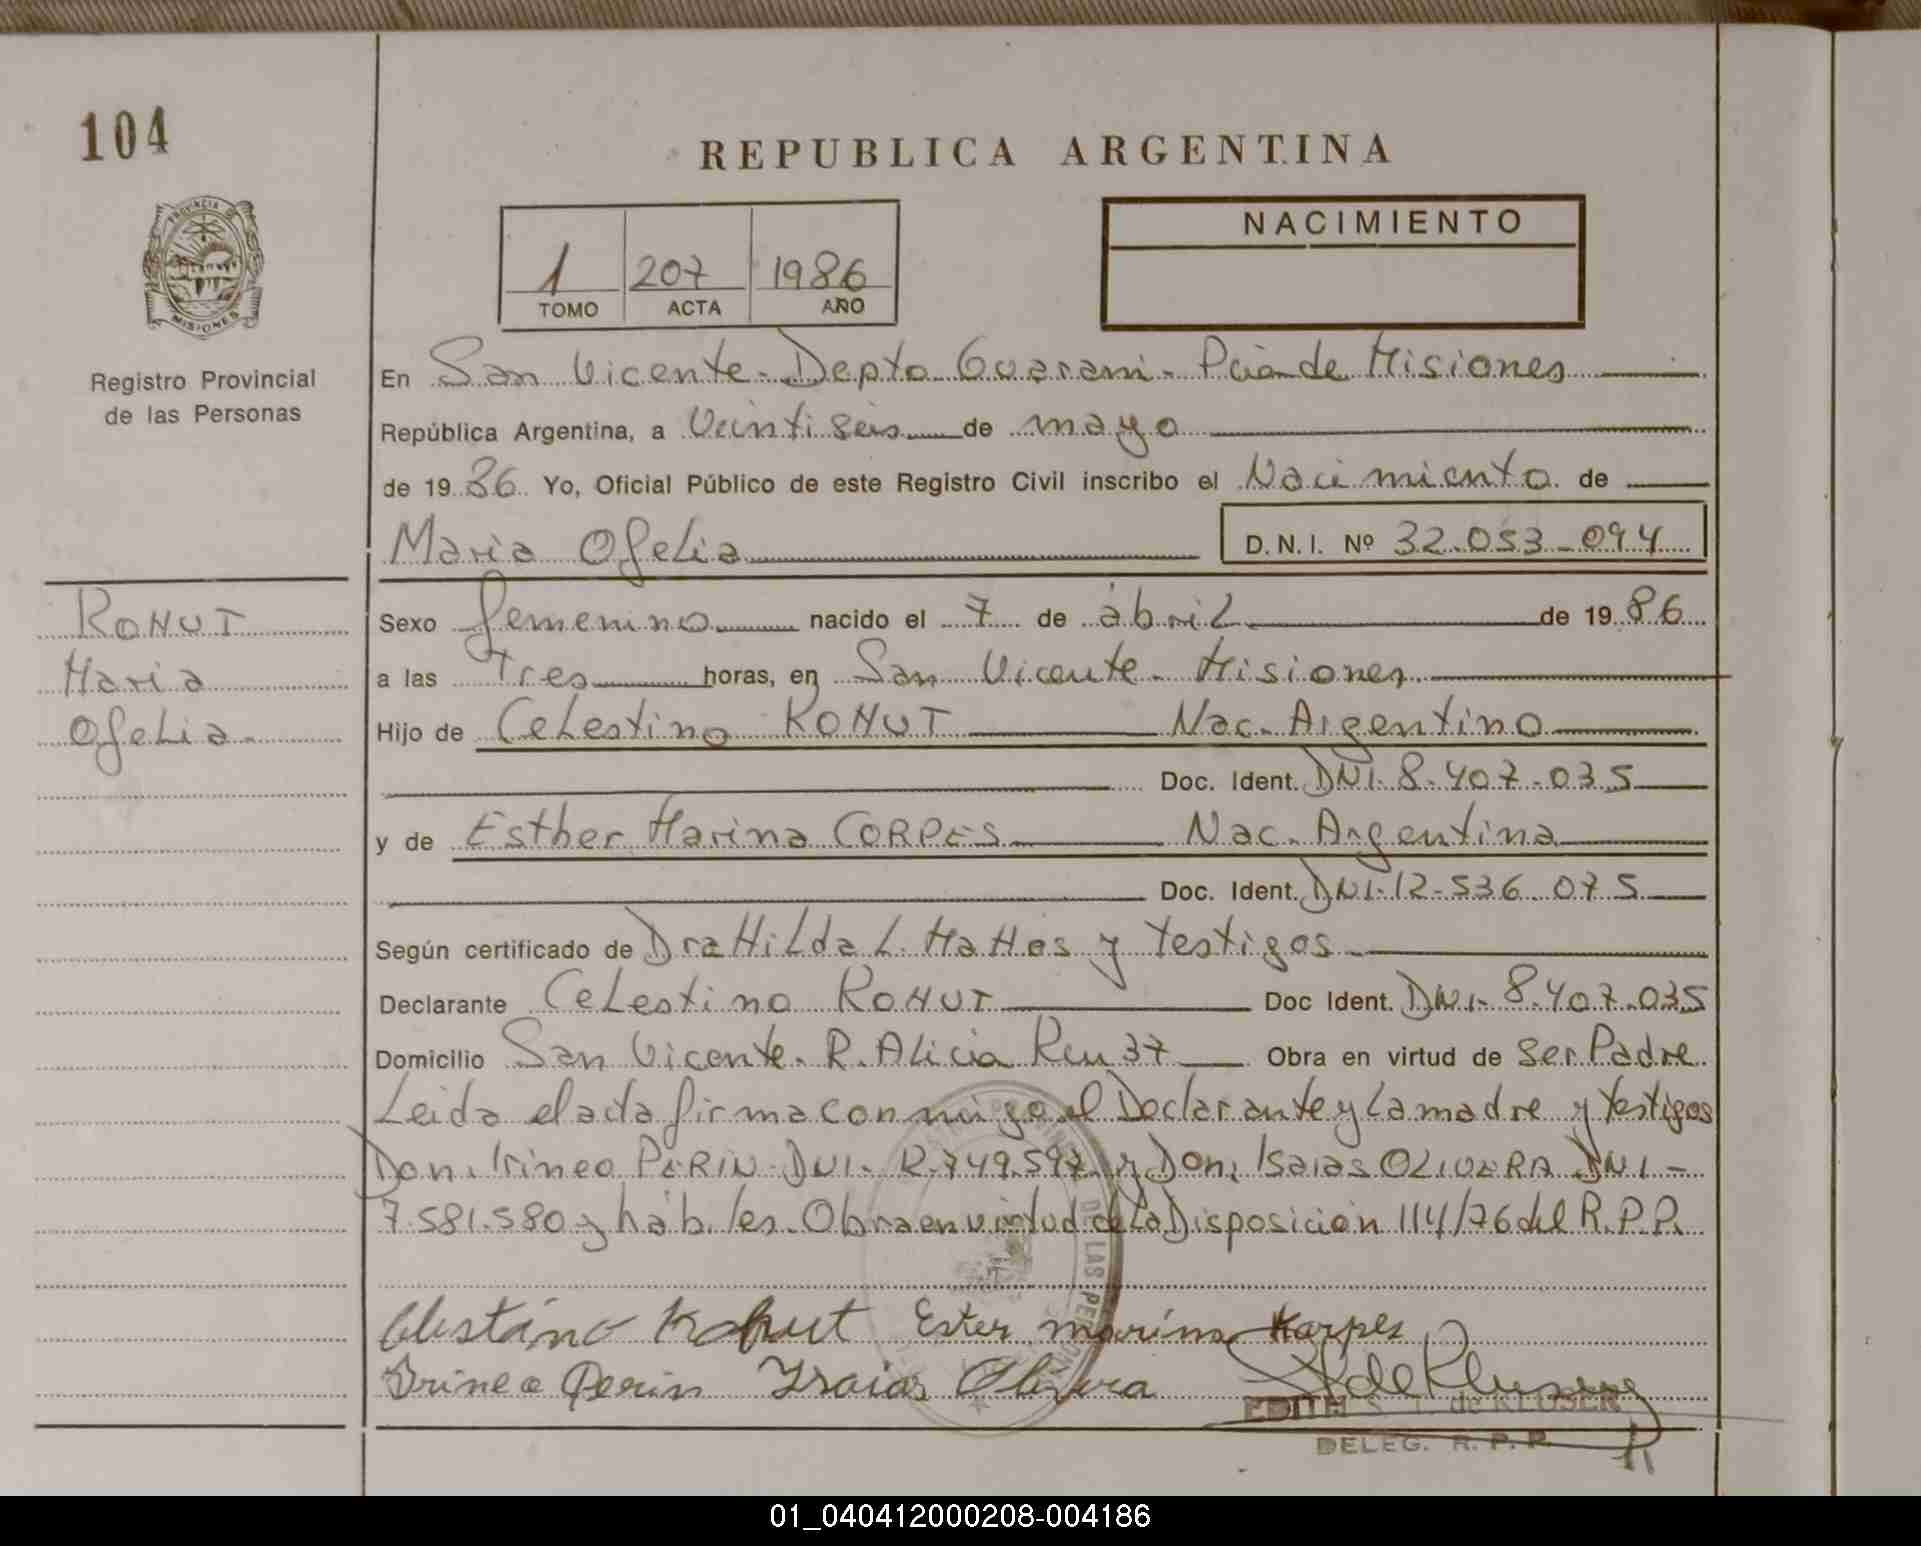 104
REPUBLICA ARGENTINA
PROVINCIA D
MISIONES
Registro Provincial
de las Personas
1 207 1986
TOMO ACTA AÑO
NACIMIENTO
En San Vicente - Depto Guarani - Pcia de Misiones
República Argentina, a Veintiseis de mayo
de 1986 Yo, Oficial Público de este Registro Civil inscribo el Nacimiento de
Maria Ofelia D.N.I. Nº 32.053-094
ROHUT
Maria
Ofelia
Sexo femenino nacido el 7 de abril de 1986
a las Tres horas, en San Vicente - Misiones
Hijo de Celestino ROHUT Nac. Argentino
Doc. Ident. DNI-8-407-035
y de Esther Marina CORPES Nac. Argentina
Doc. Ident. DNI-12-536-075
Según certificado de Dra Hilda L. Mattos y testigos
Declarante Celestino ROHUT Doc Ident. DNI-8-407-035
Domicilio San Vicente - R. Alicia Km 37 Obra en virtud de Ser Padre
Leida el acta firma conmigo el Declarante y la madre y testigos
Don, Irineo PERIN DNI- R.749.597 y Don, Isaias OLIVERA DNI-
7.581.580 y hábiles. Obra en virtud de la Disposición 114/76 del R.P.P.
Celestino Kohut Ester marina Karpes
Irineo Perin Isaias Olivera
EDITH S. T. de KLUSER
DELEG. R. P. P.
01_040412000208-004186